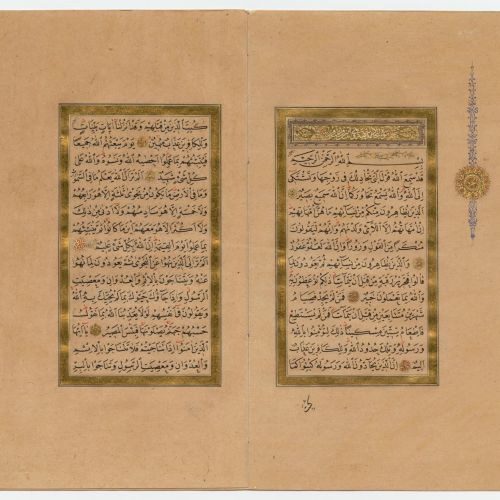 بسم الله الرحمن الرحيم
قد سمع الله قول التي تجادلك في زوجها وتشتكي
الى الله والله يسمع تحاوركما ان الله سميع بصير
الذين يظاهرون منكم من نسائهم ما هن امهاتهم
ان امهاتهم الا اللائي ولدنهم وانهم ليقولون
منكرا من القول وزورا وان الله لعفو غفور
والذين يظاهرون من نسائهم ثم يعودون لما
قالوا فتحرير رقبة من قبل ان يتماسا ذلكم توعظون به
والله بما تعملون خبير فمن لم يجد فصيام
شهرين متتابعين من قبل ان يتماسا فمن لم يستطع
فاطعام ستين مسكينا ذلك لتؤمنوا بالله
ورسوله وتلك حدود الله وللكافرين عذاب
اليم ان الذين يحادون الله ورسوله كبتوا كما
كبت الذين من قبلهم وقد انزلنا ايات بينات
وللكافرين عذاب مهين يوم يبعثهم الله جميعا
فينبئهم بما عملوا احصيه الله ونسوه والله على
كل شيء شهيد الم تر ان الله يعلم ما في السموات
وما في الارض ما يكون من نجوى ثلثة الا هو رابعهم
ولا خمسة الا هو سادسهم ولا ادنى من ذلك
ولا اكثر الا هو معهم اين ما كانوا ثم ينبئهم
بما عملوا يوم القيمة ان الله بكل شيء عليم
الم تر الى الذين نهوا عن النجوى ثم يعودون لما نهوا
عنه ويتناجون بالاثم والعدوان ومعصيت
الرسول واذا جاؤك حيوك بما لم يحيك به الله
ويقولون في انفسهم لولا يعذبنا الله بما نقول
حسبهم جهنم يصلونها فبئس المصير يا ايها
الذين امنوا اذا تناجيتم فلا تتناجوا بالاثم
والعدوان ومعصيت الرسول وتناجوا بالبر